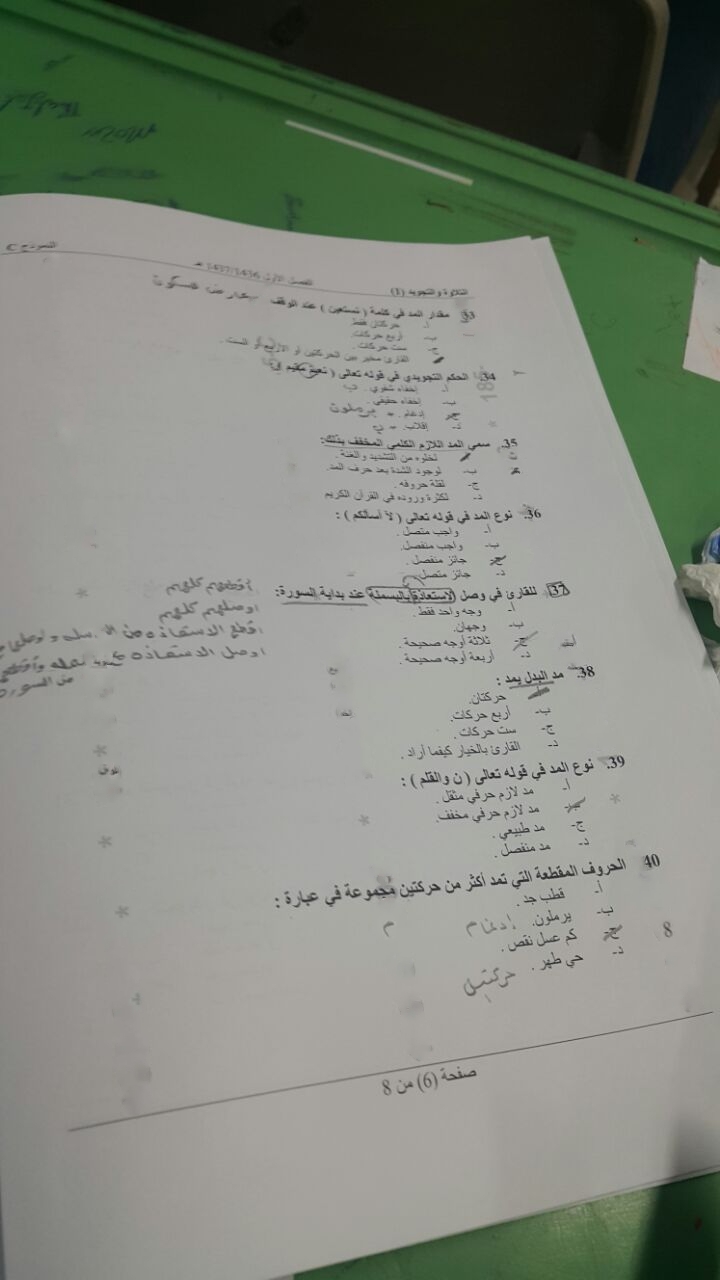 التلاوة والتجويد (1) الفصل الأول 1437/1436 هـ النموذج C
33 مقدار المد في كلمة ( نستعين ) عند الوقف عارض للسكون
أ- حركتان فقط
ب- أربع حركات.
ج- ست حركات.
القارئ مخير بين الحركتين أو الأربع أو الست.
34. الحكم التجويدي في قوله تعالى ( نعيم مقيم )
أ- إخفاء شفوي.
ب- إخفاء حقيقي.
ج- إدغام. يرملون
د- إقلاب. ب
35. سمي المد اللازم الكلمي المخفف بذلك:
لخلوه من التشديد والغنة.
ب- لوجود الشدة بعد حرف المد.
ج- لقلة حروفه.
د- لكثرة وروده في القرآن الكريم
36. نوع المد في قوله تعالى ( لا أسألكم ) :
أ- واجب متصل.
ب- واجب منفصل.
ج- جائز منفصل.
د- جائز متصل.
37 للقارئ في وصل الاستعاذة بالبسملة عند بداية السورة:
أ- وجه واحد فقط.
ب- وجهان.
ج- ثلاثة أوجه صحيحة.
د- أربعة أوجه صحيحة.
أقطعهم كلهم
اوصلهم كلهم
اقطع الاستعاذه من
اوصل الاستعاذه
من السوره
38. مد البدل يمد :
حركتان.
ب- أربع حركات.
ج- ست حركات.
د- القارئ بالخيار كيفما أراد.
39. نوع المد في قوله تعالى ( ن والقلم ) :
أ- مد لازم حرفي مثقل.
ب- مد لازم حرفي مخفف.
ج- مد طبيعي.
د- مد منفصل.
40 الحروف المقطعة التي تمد أكثر من حركتين مجموعة في عبارة :
أ- قطب جد.
ب- يرملون. إدغام م
ج- كم عسل نقص.
د- حي طهر. حركتين
8
صفحة (6) من 8